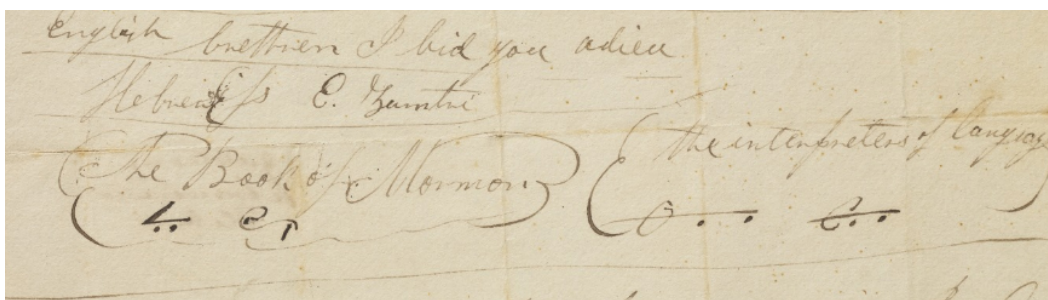 English brethren I bid you adieu
E. Zamtri
The Book of Mormon
the interpreters of languag